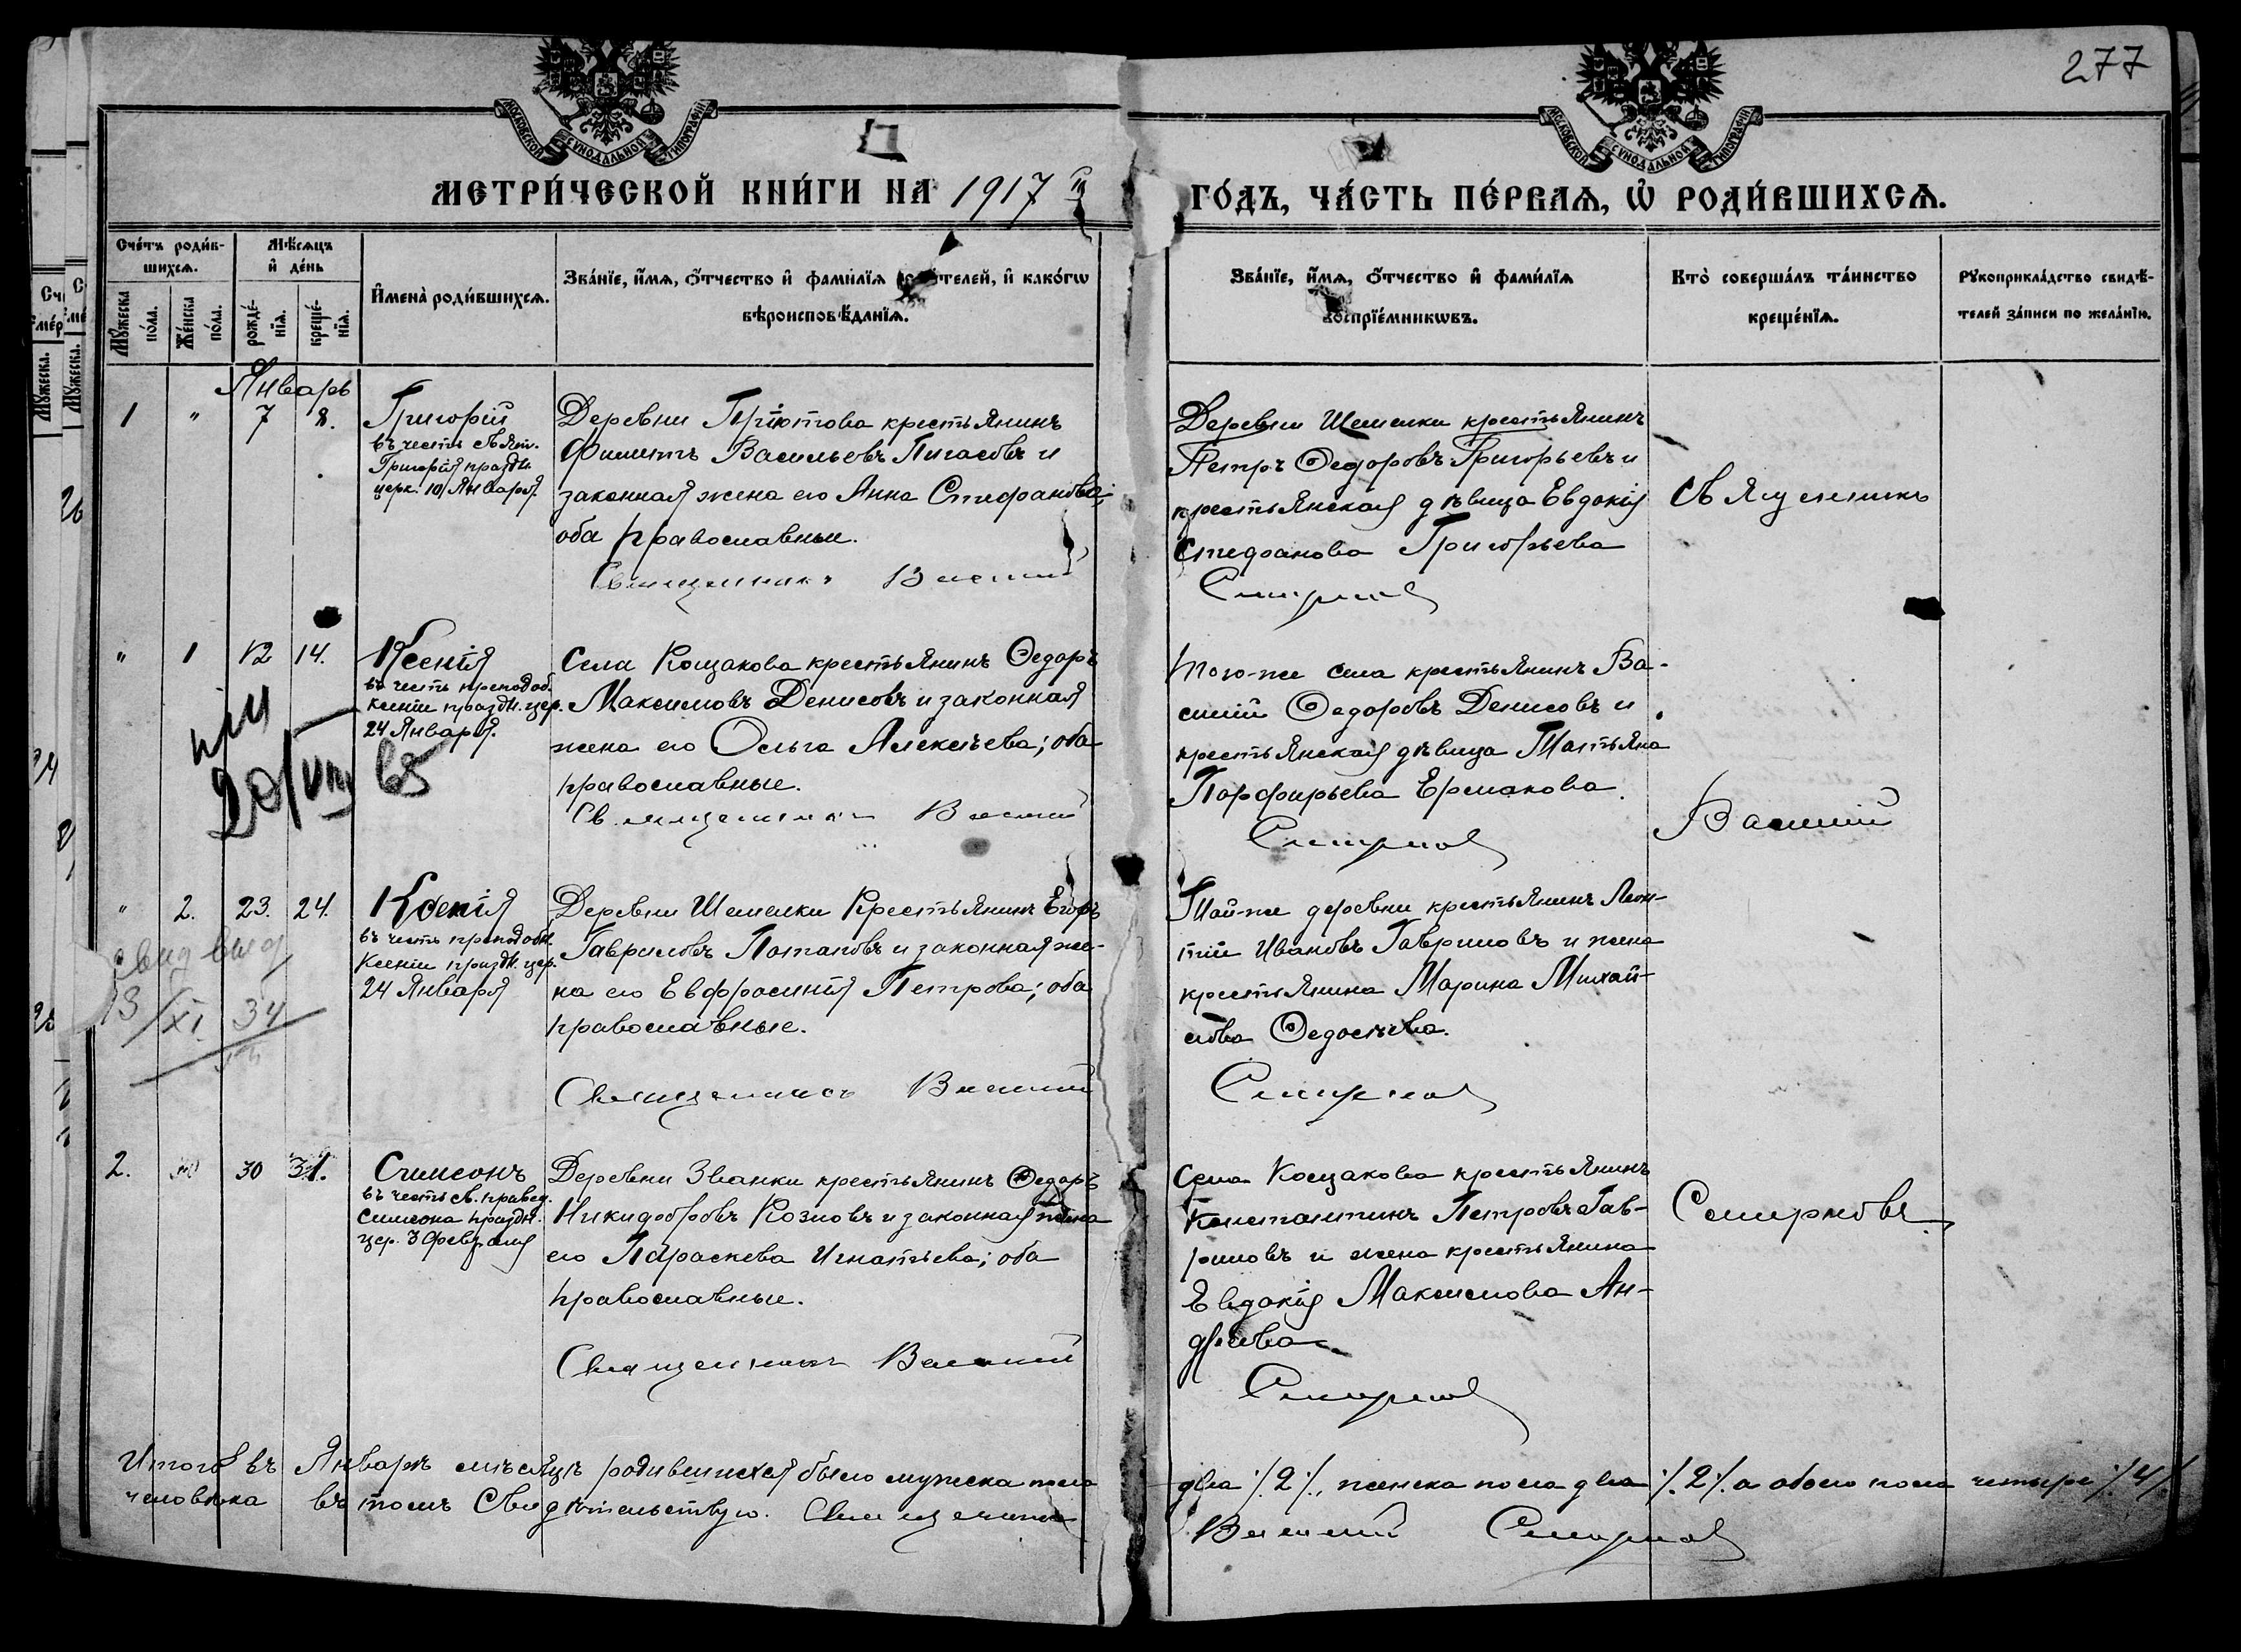 277
МОСКОВСКОЙ СѴНОДАЛЬНОЙ ТИПОГРАФІИ
МОСКОВСКОЙ СѴНОДАЛЬНОЙ ТИПОГРАФІИ
МЕТРИ́ЧЕСКОЙ КНИ́ГИ НА 1917 й ГО́ДЪ, ЧА́СТЬ ПЕ́РВАѦ, Ѽ РОДИ́ВШИХСѦ.
Сче́тъ роди́в-
шихсѧ.
Мꙋ́жеска по́ла.
Же́нска по́ла.
Мѣ́сѧцъ
и҆ де́нь
рожде́-
нїѧ.
креще́-
нїѧ.
И҆мена̀ роди́вшихсѧ.
Зва́нїе, и҆́мѧ, ѻ҆́тчество и҆ фами́лїѧ родителей, и҆ како́гѡ
вѣроисповѣ́данїѧ.
Зва́нїе, и҆́мѧ, ѻ҆́тчество и҆ фами́лїѧ
воспрїе́мникѡвъ.
Кто̀ соверша́лъ та́инство
креще́нїѧ.
Рꙋкоприкла́дство свидѣ́-
телей за́писи по жела́нїю.
Январь
1 " 7 8.
Григорій
въ честь свят.
Григорія праздн.
церк. 10 Января.
Деревни Пріютова крестьянинъ
Филиппъ Васильевъ Пигасовъ и
законная жена его Анна Стефанова;
оба православные.
Священникъ Василій
Деревни Шемелки крестьянинъ
Петръ Федоровъ Григорьевъ и
крестьянская дѣвица Евдокія
Стефанова Григорьева
Смирнов
Священникъ
" 1 12 14.
Ксенія
въ честь преподоб.
Ксеніи праздн. цер.
24 Января.
Села Кощакова крестьянинъ Федоръ
Максимовъ Денисовъ и законная
жена его Ольга Алексѣева; оба
православные.
Священникъ Василій
того-же села крестьянинъ Ва-
силій Федоровъ Денисовъ и
крестьянская дѣвица Татьяна
Порфирьева Ермакова.
Смирнов
Василій
20/VIII 65
" 2. 23. 24.
Ксенія
въ честь преподобн.
Ксеніи праздн. цер.
24 Января
Деревни Шемелки Крестьянинъ Егоръ
Гавриловъ Потаповъ и законная же-
на его Евфросинія Петрова; оба
православные.
Священникъ Василій
Той-же деревни крестьянинъ Леон-
тій Ивановъ Гавриловъ и жена
крестьянина Марина Михай-
лова Федосѣева.
Смирнов
свид выд
13/XI 34
2. " 30 31.
Симеонъ
въ честь св. правед.
Симеона праздн.
цер. 3 Февраля
Деревни Званки крестьянинъ Федоръ
Никифоровъ Козловъ и законная жена
его Параскева Игнатьева; оба
православные.
Священникъ Василій
Села Кощакова крестьянинъ
Константинъ Петровъ Гав-
риловъ и жена крестьянина
Евдокія Максимова Ан-
дреева
Смирнов
Смирновъ
Итого въ Январѣ мѣсяцѣ родившихся было мужеска пола два ./. 2 ./., женска пола два ./. 2 ./. а обоего пола четыре ./. 4 ./.
человѣка въ томъ Свидѣтельствую. Священникъ Василій Смирнов